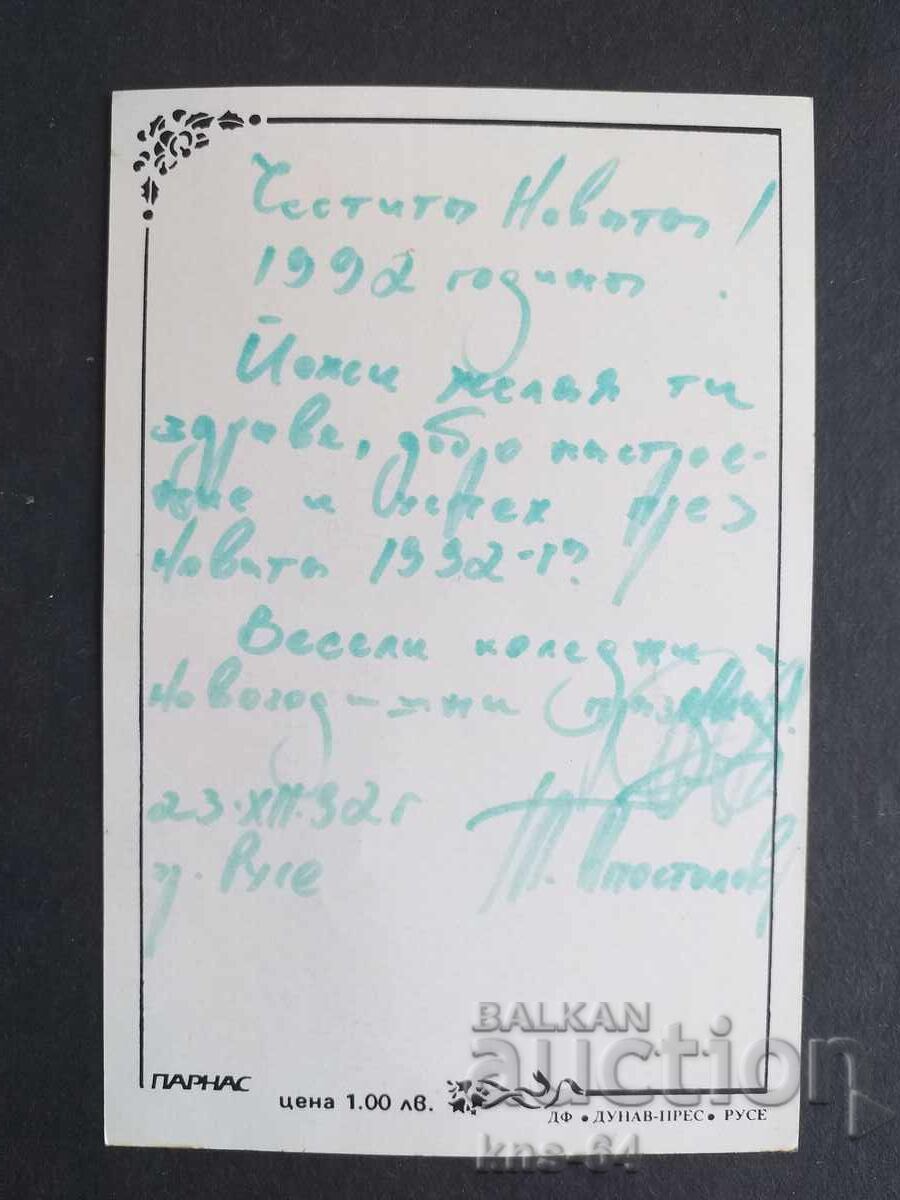 Честита Новата !
1992 година .
Йожи желая ти
здраве, добро настрое-
ние и успех през
Новата 1992-г?
Весели коледни
Новогодишни празници!
23.XII.92 г
гр. Русе Т. Апостолов
ПАРНАС
цена 1.00 лв.
ДФ • ДУНАВ-ПРЕС • РУСЕ
BALKAN
auction
kns-64